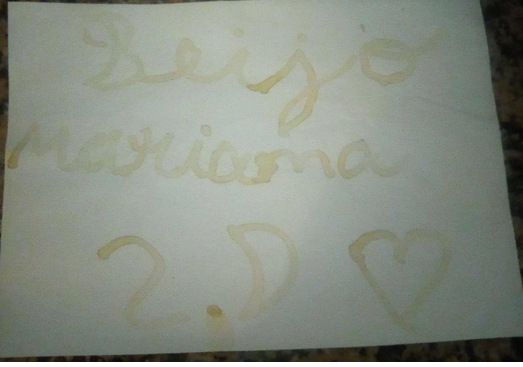 Beijo
Mariana
2.D ♡